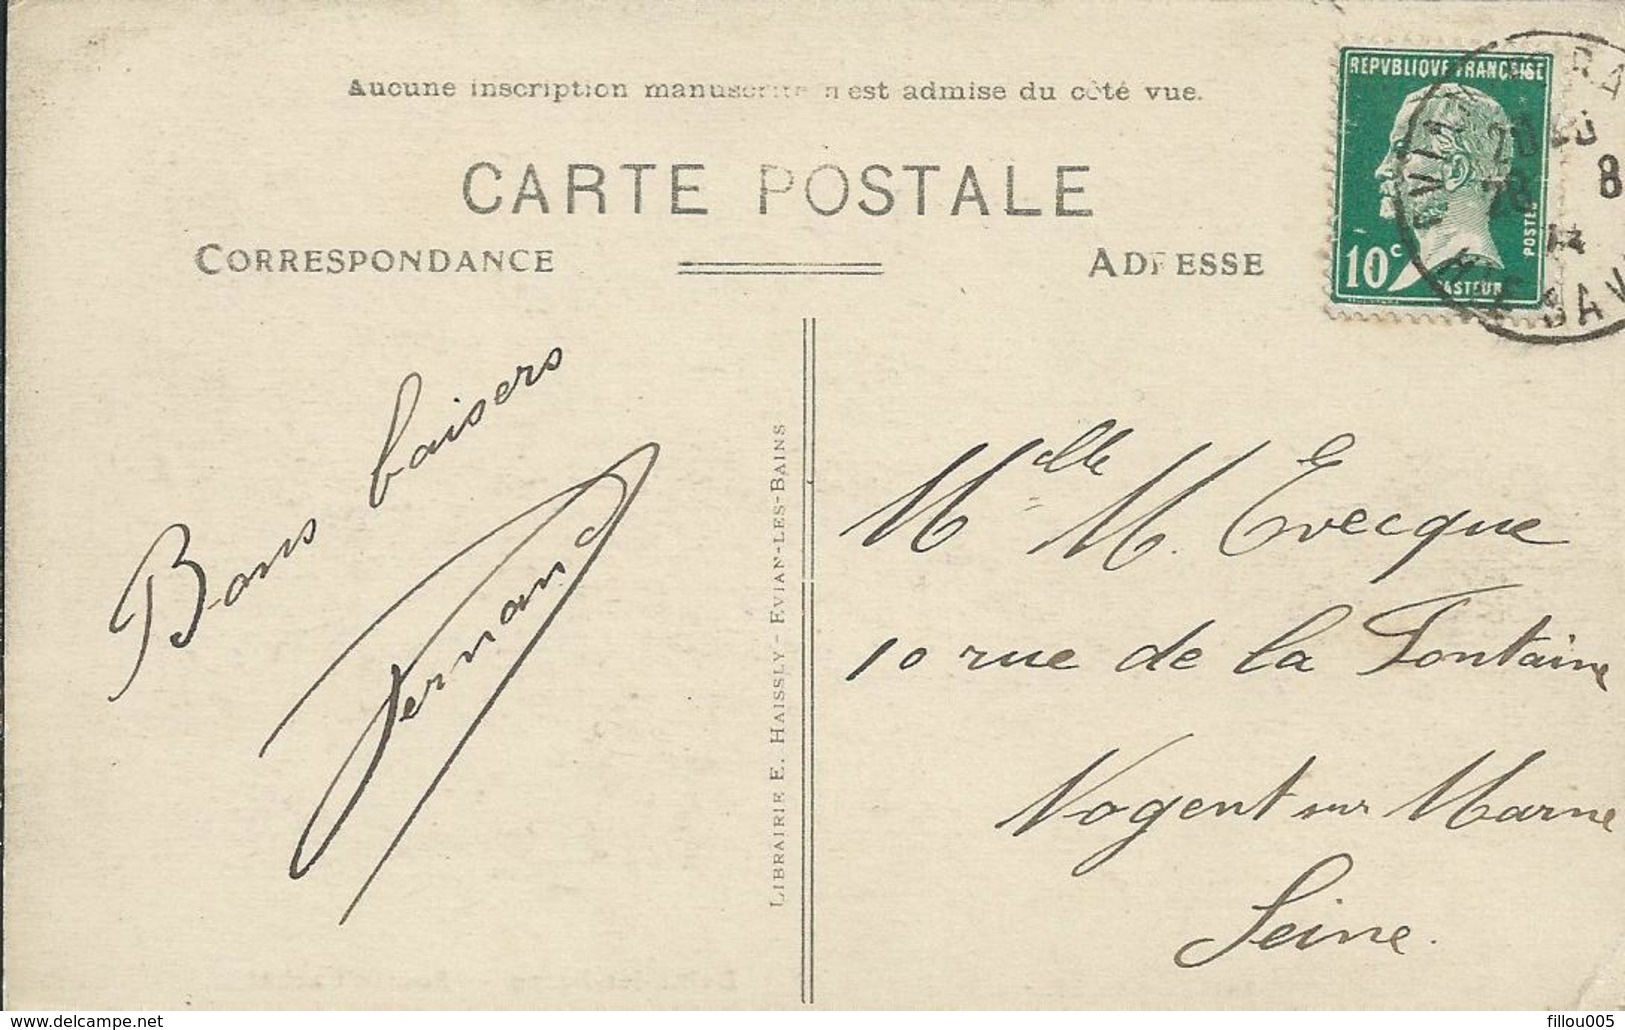 Aucune inscription manuscrite n'est admise du côté vue.
CARTE POSTALE
CORRESPONDANCE
ADRESSE
REPVBLIQVE FRANCAISE
10c
POSTES
PASTEUR
28
8
Bons baisers
Fernand
LIBRAIRIE E. HAISSLY - EVIAN-LES-BAINS
Melle M. Evecque
10 rue de la Fontaine
Nogent sur Marne
Seine.
delcampe.net
fillou005